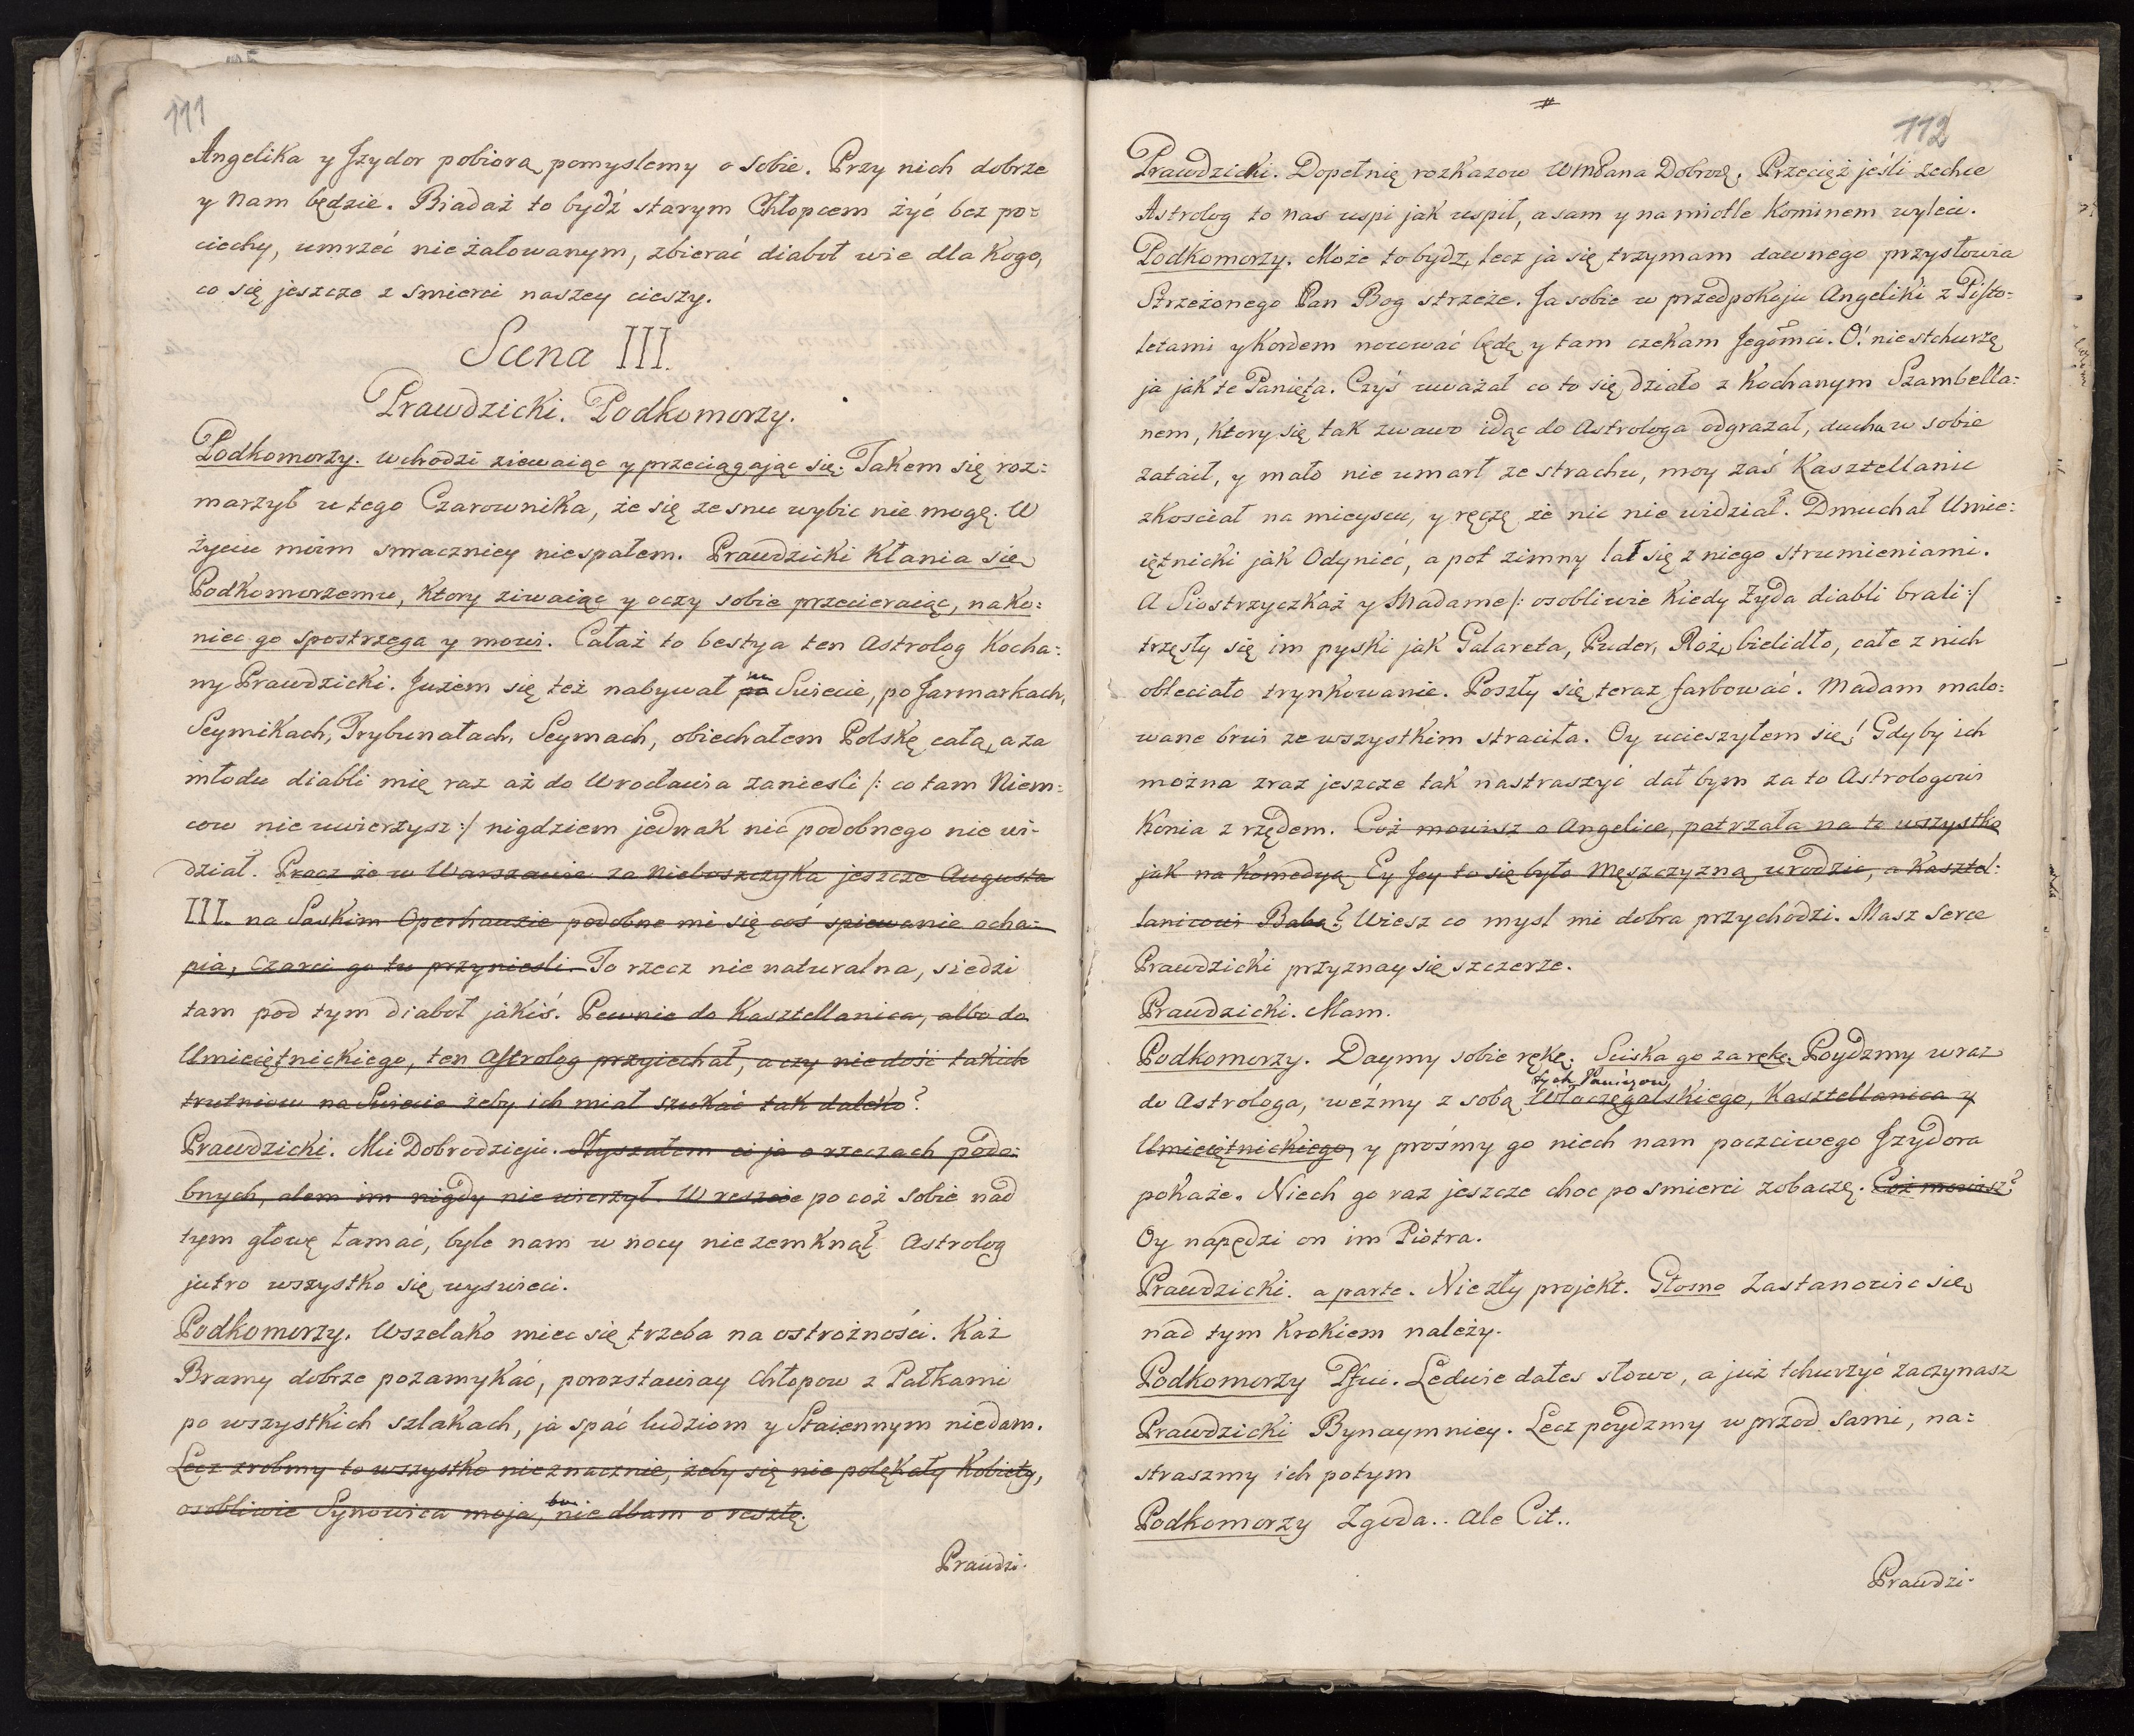 111
Angelika y Jzydor pobiorą pomyslemy o sobie. Przy nich dobrze
y nam będzie. Biadaż to bydź starym Chłopcem żyć bez po=
ciechy, umrzeć nie żałowanym, zbierać diaboł wie dla kogo,
co się jeszcze z smierci naszey cieszy.
Scena III.
Prawdzicki. Podkomorzy.
Podkomorzy. wchodzi ziewaiąc y przeciągając się. Takem się roz=
marzył u tego Czarownika, że się ze snu wybic nie mogę. W
życiu moim smaczniey niespałem. Prawdzicki Kłania się
Podkomorzemu, Ktory ziwaiąc y oczy sobie przecieraiąc, nako=
niec go spostrzega y mowi. Całaż to bestya ten Astrolog Kocha=
ny Prawdzicki. Jużem się też nabywał po w Swiecie, po Jarmarkach,
Seymikach, Trybunałach, Seymach, obiechałem Polskę całą, a za
młodu diabli mię raz aż do Wrocławia zaniesli /: co tam Niem=
cow nie uwierzysz :/ nigdziem jednak nic podobnego nie wi-
dział. Procz że w Warszawie za Nieboszczyka jeszcze Augusta
III. na Saskim Operhauzie podobne mi się coś spiewanie ocha=
pia, Czarci go tu przyniesli. To rzecz nie naturalna, siedzi
tam pod tym diaboł jakiś. Pewnie do Kasztellanica, albo do
Umieiętnickiego, ten Astrolog przyiechał, a czy nie dość takich
trutniow na Swiecie żeby ich miał szukać tak daleko?
Prawdzicki. Mci Dobrodzieju. Słyszałem ci ja o rzeczach podo=
bnych, alem im nigdy nie wierzył. W reszcie po coż sobie nad
tym głowę łamać, byle nam w nocy niezemknął Astrolog
jutro wszystko się wyswieci.
Podkomorzy. Wszelako miec się trzeba na ostrożności. Każ
Bramy dobrze pozamykać, porozstawiay Chłopow z Pałkami
po wszystkich szlakach, ja spać ludziom y Staiennym niedam.
Lecz zrobmy to wszystko nieznacznie, żeby się nie polękały Kobiety,
osobliwie Synowica moja, bo niedbam o resztę.
Prawdzi-
112
Prawdzicki. Dopełnię rozkazow WmPana Dobrod. Przecięż jeśli zechce
Astrolog to nas uspi jak uspił, a sam y na miotle Kominem wyleci.
Podkomorzy. Może to bydz, lecz ja się trzymam dawnego przysłowia
Strzeżonego Pan Bog strzeże. Ja sobie w przedpokoju Angeliki z Pisto=
letami y Kordem nocować będę y tam czekam Jegomci. O! niestchurzę
ja jak te Panięta. Czyś uważał co to się działo z Kochanym Szambella=
nem, Ktory się tak zwawo idąc do Astrologa odgrażał, ducha w sobie
zataił, y mało nie umarł ze strachu, moy zaś Kasztellanic
zkosciał na mieyscu, y ręczę że nic nie widział. Dmuchał Umie=
iętnicki jak Odyniec, a pot zimny lał się z niego strumieniami.
A Siostrzyczkaż y Madame /: osobliwie kiedy Żyda diabli brali :/
trzęsły się im pyski jak Galareta, Puder, Roż, bielidło, całe z nich
obleciało trynkowanie. Poszły się teraz farbować. Madam malo=
wane brwi ze wszystkim straciła. Oy ucieszyłem się! Gdyby ich
można zraz jeszcze tak nastraszyć dał bym za to Astrologowi
Konia z rzędem. Coż mowisz o Angelice, patrzała na to wszystko
jak na Komedyą. Ey Jey to się było Męszczyzną urodzic, a Kasztel=
lanicowi Babą? Wiesz co mysl mi dobra przychodzi. Masz Serce
Prawdzicki przyznay się szczerze.
Prawdzicki. Mam.
Podkomorzy. Daymy sobie rękę. Sciska go za rękę. Poydzmy wraz
tych Paniczow
do Astrologa, weźmy z sobą Włoczęgalskiego, Kasztellanica y
Umieiętnickiego, y prośmy go niech nam poczciwego Jzydora
pokaże. Niech go raz jeszcze choc po smierci zobaczę. Coż mowisz?
Oy napędzi on im Piotra.
Prawdzicki. a parte. Niezły projekt. Głosno Zastanowic się
nad tym Krokiem należy.
Podkomorzy Pfui. Ledwie dałes słowo, a już tchurzyć zaczynasz
Prawdzicki Bynaymniey. Lecz poydzmy w przod sami, na=
straszmy ich potym
Podkomorzy Zgoda.. Ale Cit..
Prawdzi-